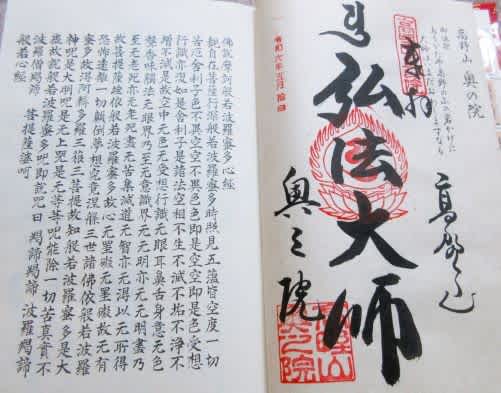 高野山 奥の院
奉拝
弘法大師
奥之院
佛説摩訶般若波羅蜜多心経
觀自在菩薩行深般若波羅蜜多時照見五蘊皆空度一切
苦厄舎利子色不異空空不異色色即是空空即是色受想
行識亦復如是舎利子是諸法空相不生不滅不垢不淨不
増不減是故空中无色无受想行識无眼耳鼻舌身意无色
聲香味觸法无眼界乃至无意識界无无明亦无无明盡乃
至无老死亦无老死盡无苦集滅道无智亦无得以无所得
故菩提薩埵依般若波羅蜜多故心无罣礙无罣礙故无有
恐怖遠離一切顛倒夢想究竟涅槃三世諸佛依般若波羅
蜜多故得阿耨多羅三藐三菩提故知般若波羅蜜多是大
神呪是大明呪是无上呪是无等等呪能除一切苦真實不
虚故説般若波羅蜜多呪即説呪曰 羯諦羯諦 波羅羯諦
波羅僧羯諦 菩提薩婆呵
般若心経